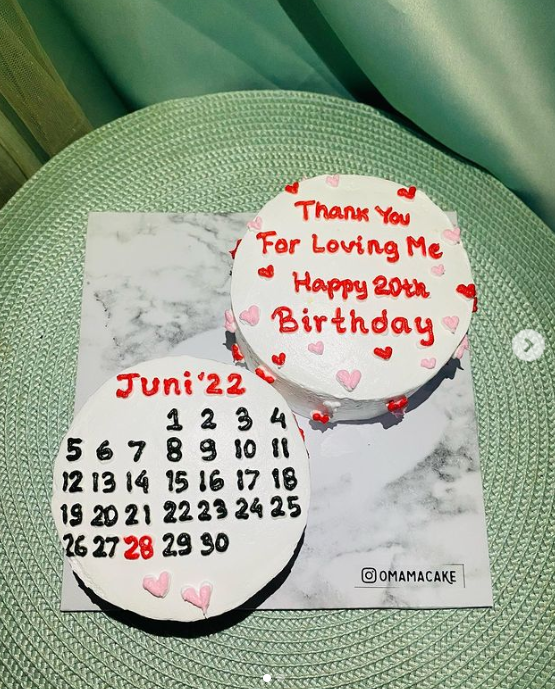 Thank You
For Loving Me
Happy 20th
Birthday
Juni'22
1 2 3 4
5 6 7 8 9 10 11
12 13 14 15 16 17 18
19 20 21 22 23 24 25
26 27 28 29 30
OMAMACAKE